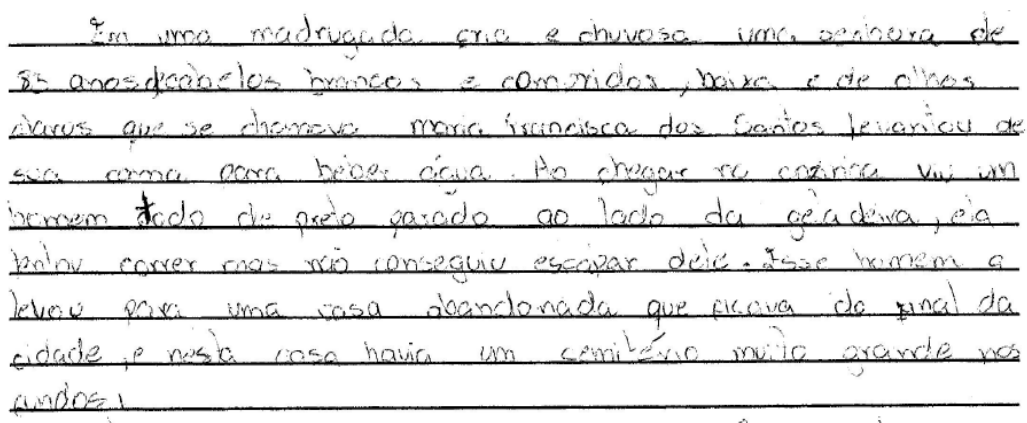 Em uma madrugada fria e chuvosa uma senhora de
85 anos de cabelos brancos e compridos, baixa e de olhos
claros que se chamava maria francisca dos Santos levantou de
sua cama para beber água. Ao chegar na cozinha viu um
homem todo de preto parado ao lado da geladeira, ela
tentou correr mas não conseguiu escapar dele. Esse homem a
levou para uma casa abandonada que ficava do final da
cidade, e nesta casa havia um semitério muito grande nos
undos.